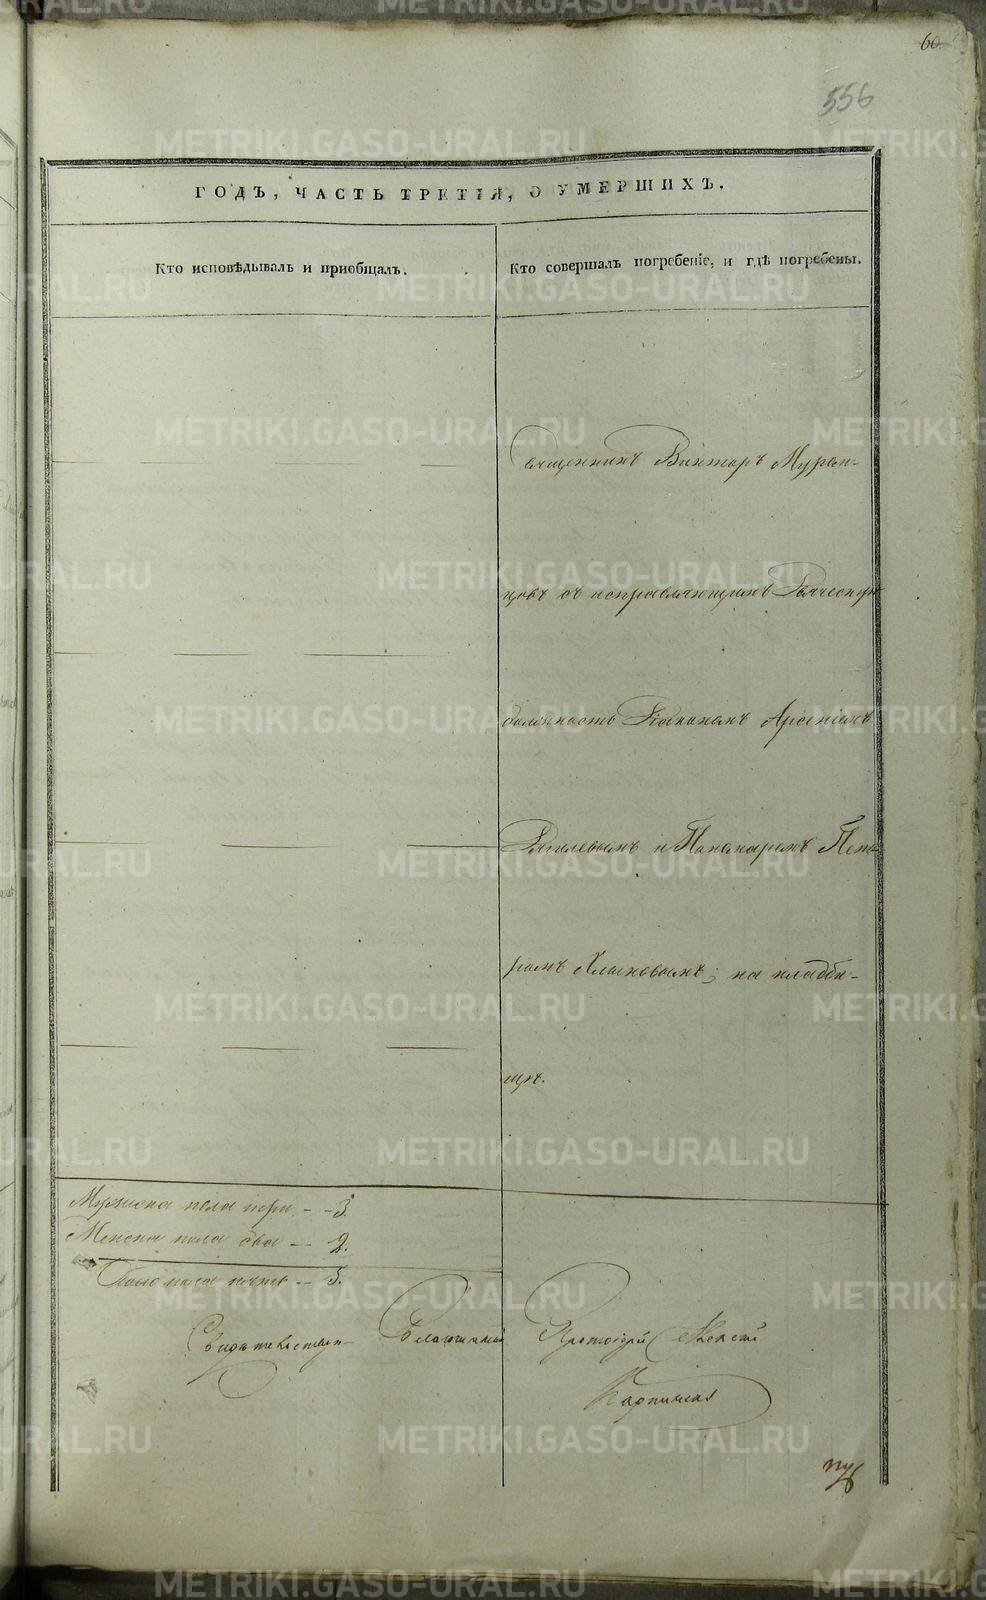 60.
556
ГОДЪ, ЧАСТЬ ТРЕТІЯ, О УМЕРШИХЪ.
Кто исповѣдывалъ и пріобщалъ.
Кто совершалъ погребеніе, и гдѣ погребены.
Священникъ Викторъ Муром-
цовъ съ исправляющимъ Дьяческую
должность Діакономъ Арсеніемъ
и Пономаремъ Пет-
ромъ на кладби-
щѣ.
Мужеска пола три - - 3.
Женска пола два - 2.
Обоего пола пять - - 5.
Благочинный Протоіерей Алексій
Карпинскій
METRIKI.GASO-URAL.RU